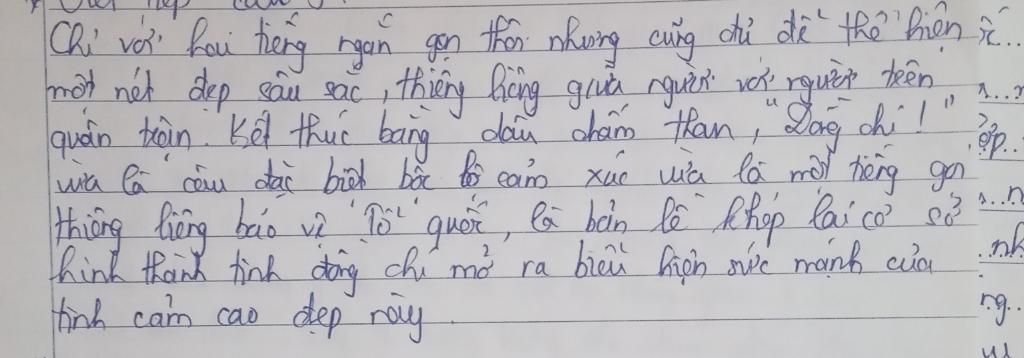 Chỉ với hai tiếng ngắn gọn thôi nhưng cũng đủ để thể hiện
một nét đẹp sâu sắc, thiêng liêng giữa người với người trên
quân trận. Kết thúc bằng dấu chấm than, "Đồng chí!"
vừa là câu đặc biệt bộc lộ cảm xúc vừa là một tiếng gọi
thiêng liêng bảo vệ Tổ quốc, là bản lề khép lại cơ sở
hình thành tình đồng chí mở ra biểu hiện sức mạnh của
tình cảm cao đẹp này.